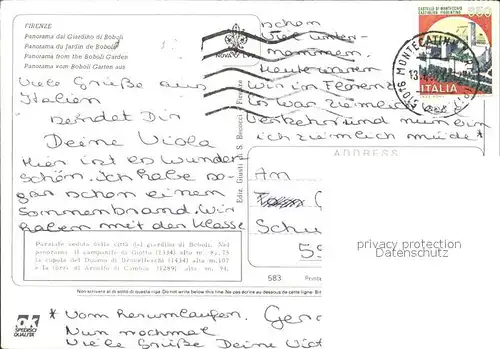 FIRENZE
Panorama dal Giardino di Boboli
Panorama du Jardin de Boboli
Panorama from the Boboli Garden
Panorama vom Boboli Garten aus
NOVA LUX
CASTELLO DI MONTECCHIO
CASTIGLION FIORENTINO
650
ITALIA
51016 MONTECATINI
13
Viele Grüße aus
Italien
sendet Dir
Deine Viola
Hier ist es wunder-
schön. Ich habe so-
gar schon einen
Sonnenbrand. Wir
haben mit der Klasse
schon
viel unter-
nommen.
Heute waren
wir in Florenz.
Es war ziemlich
und nun bin
ich ziemlich müde*
Ediz. Giusti di S. Becocci - Firenze
Parziale veduta della città dal giardino di Boboli. Nel
panorama il campanile di Giotto (1334) alt. m.
la cupola del Duomo di Brunelleschi (1434) alt. m. 107
e la torre di Arnolfo di Cambio (1289) alt. m. 94.
ADDRESS
An
Schu
55
privacy protection
Datenschutz
583
Printe
Non scrivere al di sotto di questa riga Do not write below this line Ne pas écrire au-dessous de cette ligne
SPEDISCI
QUALITA'
* vom herumlaufen.
Nun nochmal
Viele Grüße Deine Viol